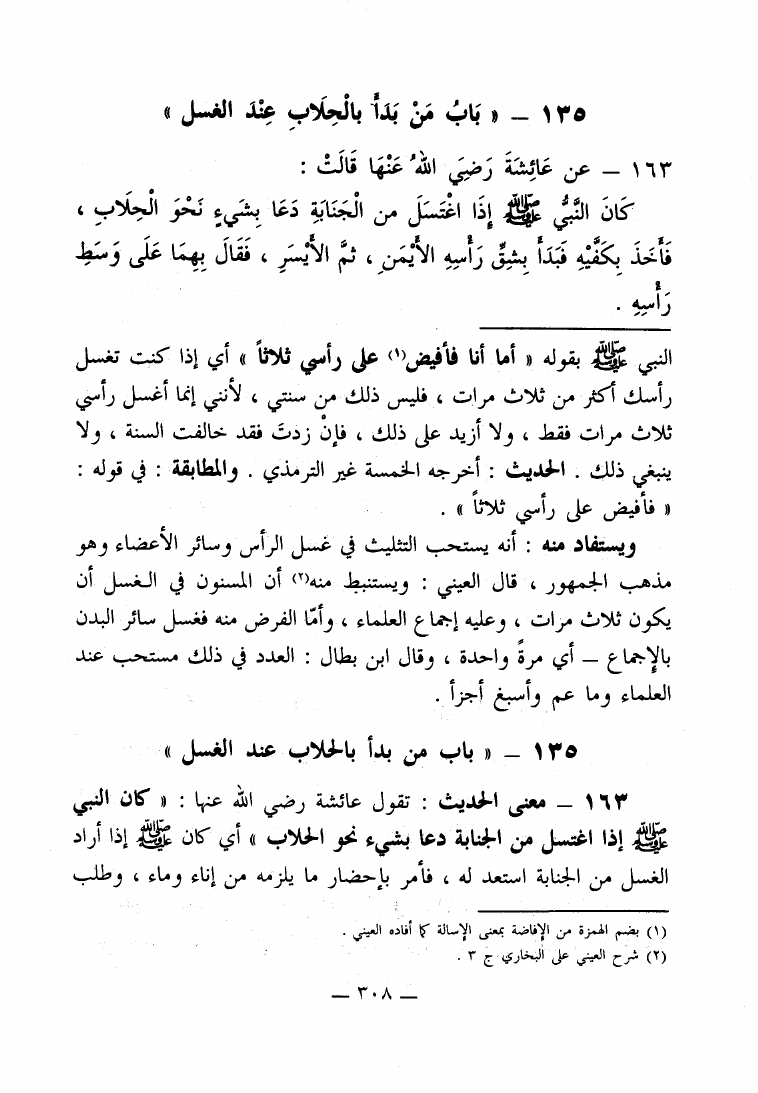 ١٣٥ – « بَابُ مَنْ بَدَأَ بالْحِلَابِ عِنْدَ الغسل »
١٦٣ – عن عَائِشَةَ رَضِيَ اللهُ عَنْهَا قَالَتْ :
كَانَ النَّبِيُّ ﷺ إِذَا اغْتَسَلَ من الْجَنَابَةِ دَعَا بِشَيءٍ نَحْوَ الْحِلَابِ ،
فَأَخَذَ بِكَفَّيْهِ فَبَدَأَ بِشِقِّ رَأْسِهِ الأَيْمَنِ ، ثمَّ الأَيْسَرِ ، فَقَالَ بِهِمَا عَلَى وَسَطِ
رَأْسِهِ .
النبي ﷺ بقوله « أما أنا فأفيض(١) على رأسي ثلاثاً » أي إذا كنت تغسل
رأسك أكثر من ثلاث مرات ، فليس ذلك من سنتي ، لأنني إنما أغسل رأسي
ثلاث مرات فقط ، ولا أزيد على ذلك ، فإنْ زدتَ فقد خالفت السنة ، ولا
ينبغي ذلك . الحديث : أخرجه الخمسة غير الترمذي . والمطابقة : في قوله :
« فأفيض على رأسي ثلاثاً » .
ويستفاد منه : أنه يستحب التثليث في غسل الرأس وسائر الأعضاء وهو
مذهب الجمهور ، قال العيني : ويستنبط منه(٢) أن المسنون في الغسل أن
يكون ثلاث مرات ، وعليه إجماع العلماء ، وأمّا الفرض منه فغسل سائر البدن
بالإجماع – أي مرةً واحدة ، وقال ابن بطال : العدد في ذلك مستحب عند
العلماء وما عم وأسبغ أجزأ .
١٣٥ – « باب من بدأ بالحلاب عند الغسل »
١٦٣ – معنى الحديث : تقول عائشة رضي الله عنها : « كان النبي
ﷺ إذا اغتسل من الجنابة دعا بشيء نحو الحلاب » أي كان ﷺ إذا أراد
الغسل من الجنابة استعد له ، فأمر بإحضار ما يلزمه من إناء وماء ، وطلب
(١) بضم الهمزة من الإفاضة بمعنى الإسالة كما أفاده العيني .
(٢) شرح العيني على البخاري ج ٣ .
– ٣٠٨ –